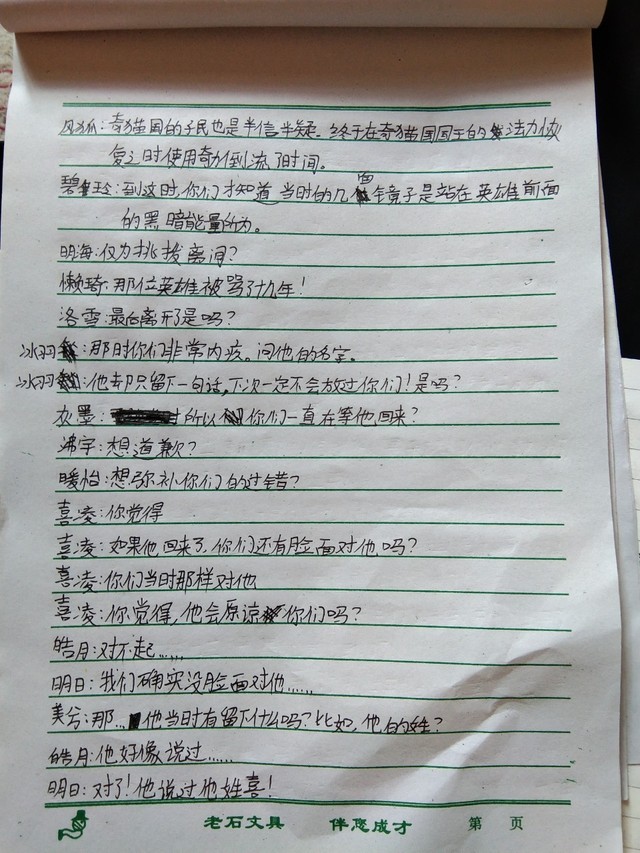 风狐：奇猫国的子民也是半信半疑。终于在奇猫国国王的法力恢
复之时使用奇力倒流了时间。
碧玲：到这时，你们才知道，当时的几面镜子是站在英雄前面
的黑暗能量所为。
明海：仅为挑拨离间？
懒琦：那位英雄被骂了十几年！
洛雪：最后离开了是吗？
冰羽：那时你们非常内疚。问他的名字。
冰羽：他却只留下一句话，下次一定不会放过你们！是吗？
灰墨：所以你们一直在等他回来？
沸宇：想道歉？
暖怡：想弥补你们的过错？
喜凌：你觉得
喜凌：如果他回来了，你们还有脸面对他吗？
喜凌：你们当时那样对他
喜凌：你觉得，他会原谅你们吗？
皓月：对不起……
明日：我们确实没脸面对他……
美兮：那…他当时有留下什么吗？比如，他的姓？
皓月：他好像说过……
明日：对了！他说过他姓喜！
老石文具 伴您成才 第 页